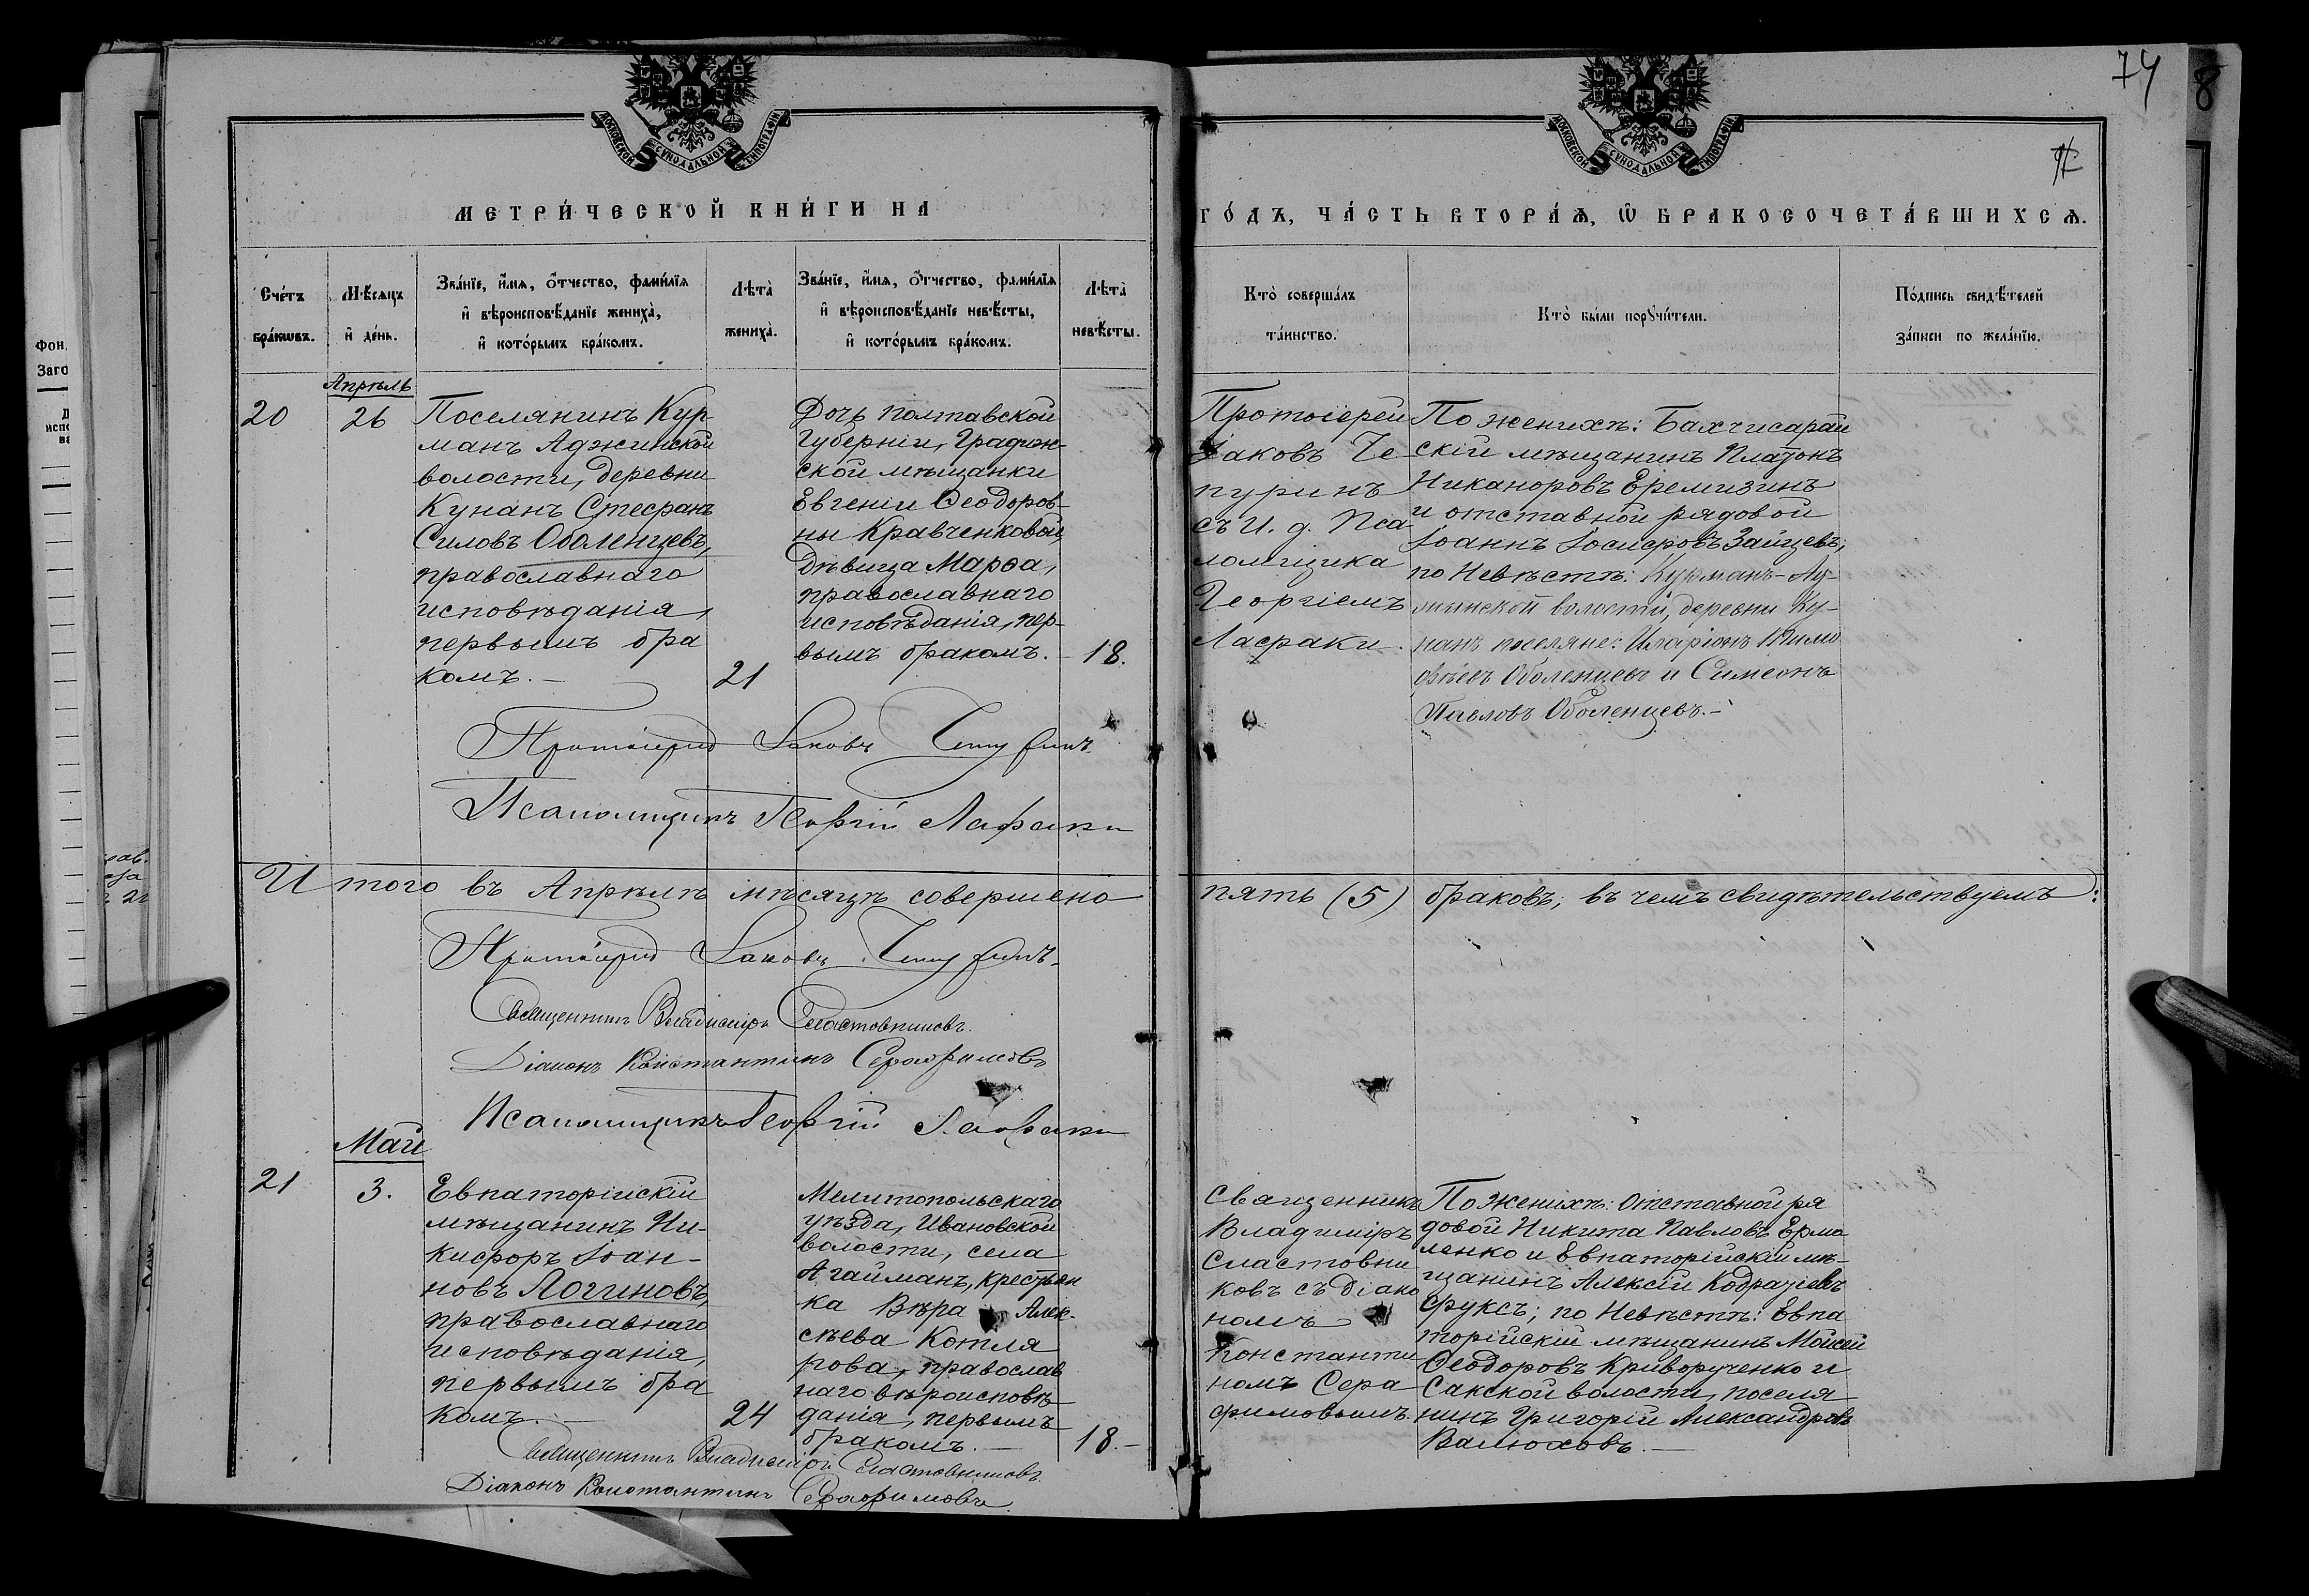 74
8
МОСКОВСКОЙ СУНОДАЛЬНОЙ ТИПОГРАФІИ
МОСКОВСКОЙ СУНОДАЛЬНОЙ ТИПОГРАФІИ
МЕТРИ́ЧЕСКОЙ КНИ́ГИ НА
ГО́ДЪ, ЧА́СТЬ ВТОРА́Ѧ, Ѿ БРАКОСОЧЕТА́ВШИХСѦ.
Сче́тъ
бра́кѡвъ.
Мѣ́сѧцъ
и де́нь.
Зва́нїе, и́мѧ, ѻ́тчество, фами́лїѧ
и вѣроисповѣ́данїе жениха̀,
и кото́рымъ бра́комъ.
Лѣта̀
жениха̀.
Зва́нїе, и́мѧ, ѻ́тчество, фами́лїѧ
и вѣроисповѣ́данїе невѣ́сты,
и кото́рымъ бра́комъ.
Лѣта̀
невѣ́сты.
Кто̀ соверша́лъ
та́инство.
Кто̀ бы́ли порꙋчи́тели.
По́дпись свидѣ́телей
за́писи по жела́нїю.
Апрѣль
20
26
Поселянинъ Кур
манъ Аджинской
волости, деревни
Кунанъ Стефанъ
Силовъ Оболенцевъ,
православнаго
исповѣданія,
первымъ бра
комъ. —
21
Дочь полтавской
Губерніи, Градиж-
ской мѣщанки
Евгеніи Ѳеодоров-
ны Кравченковой,
Дѣвица Марѳа,
православнаго
исповѣданія, пер-
вымъ бракомъ.
18.
Протоіерей
Іаковъ Че-
пуринъ
съ И. д. Пса-
ломщика
Георгіемъ
Лафраки.
По женихѣ: Бахчисарай
скій мѣщанинъ Платонъ
Никаноровъ Еремизинъ
и отставной рядовой
Іоаннъ Іосифовъ Зайцевъ;
по Невѣстѣ: Курманъ-Ад-
жинской волости, деревни Ку-
нанъ поселяне: Иларіонъ Тимо
фѣевъ Оболенцевъ и Симеонъ
Павловъ Оболенцевъ. —
Протоіерей Іаковъ Чепуринъ
Псаломщикъ Георгій Лафраки
Итого въ Апрѣлѣ мѣсяцѣ совершено пять (5) браковъ, въ чемъ свидѣтельствуемъ:
Протоіерей Іаковъ Чепуринъ
Священникъ Владиміръ Сластовниковъ.
Діаконъ Константинъ Серафимовъ
Псаломщикъ Георгій Лафраки
Май
21
3.
Евпаторійскій
мѣщанинъ Ни-
кифоръ Іоан-
новъ Логиновъ,
православнаго
исповѣданія,
первымъ бра
комъ. —
24
Мелитопольскаго
уѣзда, Ивановской
волости, села
Агайманъ, крестьян
ка Вѣра Алек-
сѣева Котля
рова, православ
наго вѣроисповѣ-
данія, первымъ
бракомъ. —
18. —
Священникъ
Владиміръ
Сластовни
ковъ съ Діако
номъ
Константи
номъ Сера
фимовымъ.
По Женихѣ: Отставной ря
довой Никита Павловъ Ермо
ленко и Евпаторійскій мѣ-
щанинъ Алексій Кодратіевъ
Фуксъ; по Невѣстѣ: Евпа
торійскій мѣщанинъ Моисей
Ѳеодоровъ Криворученко и
Сакской волости, поселя
нинъ Григорій Александровъ
Валюховъ. —
Священникъ Владиміръ Сластовниковъ
Діаконъ Константинъ Серафимовъ.